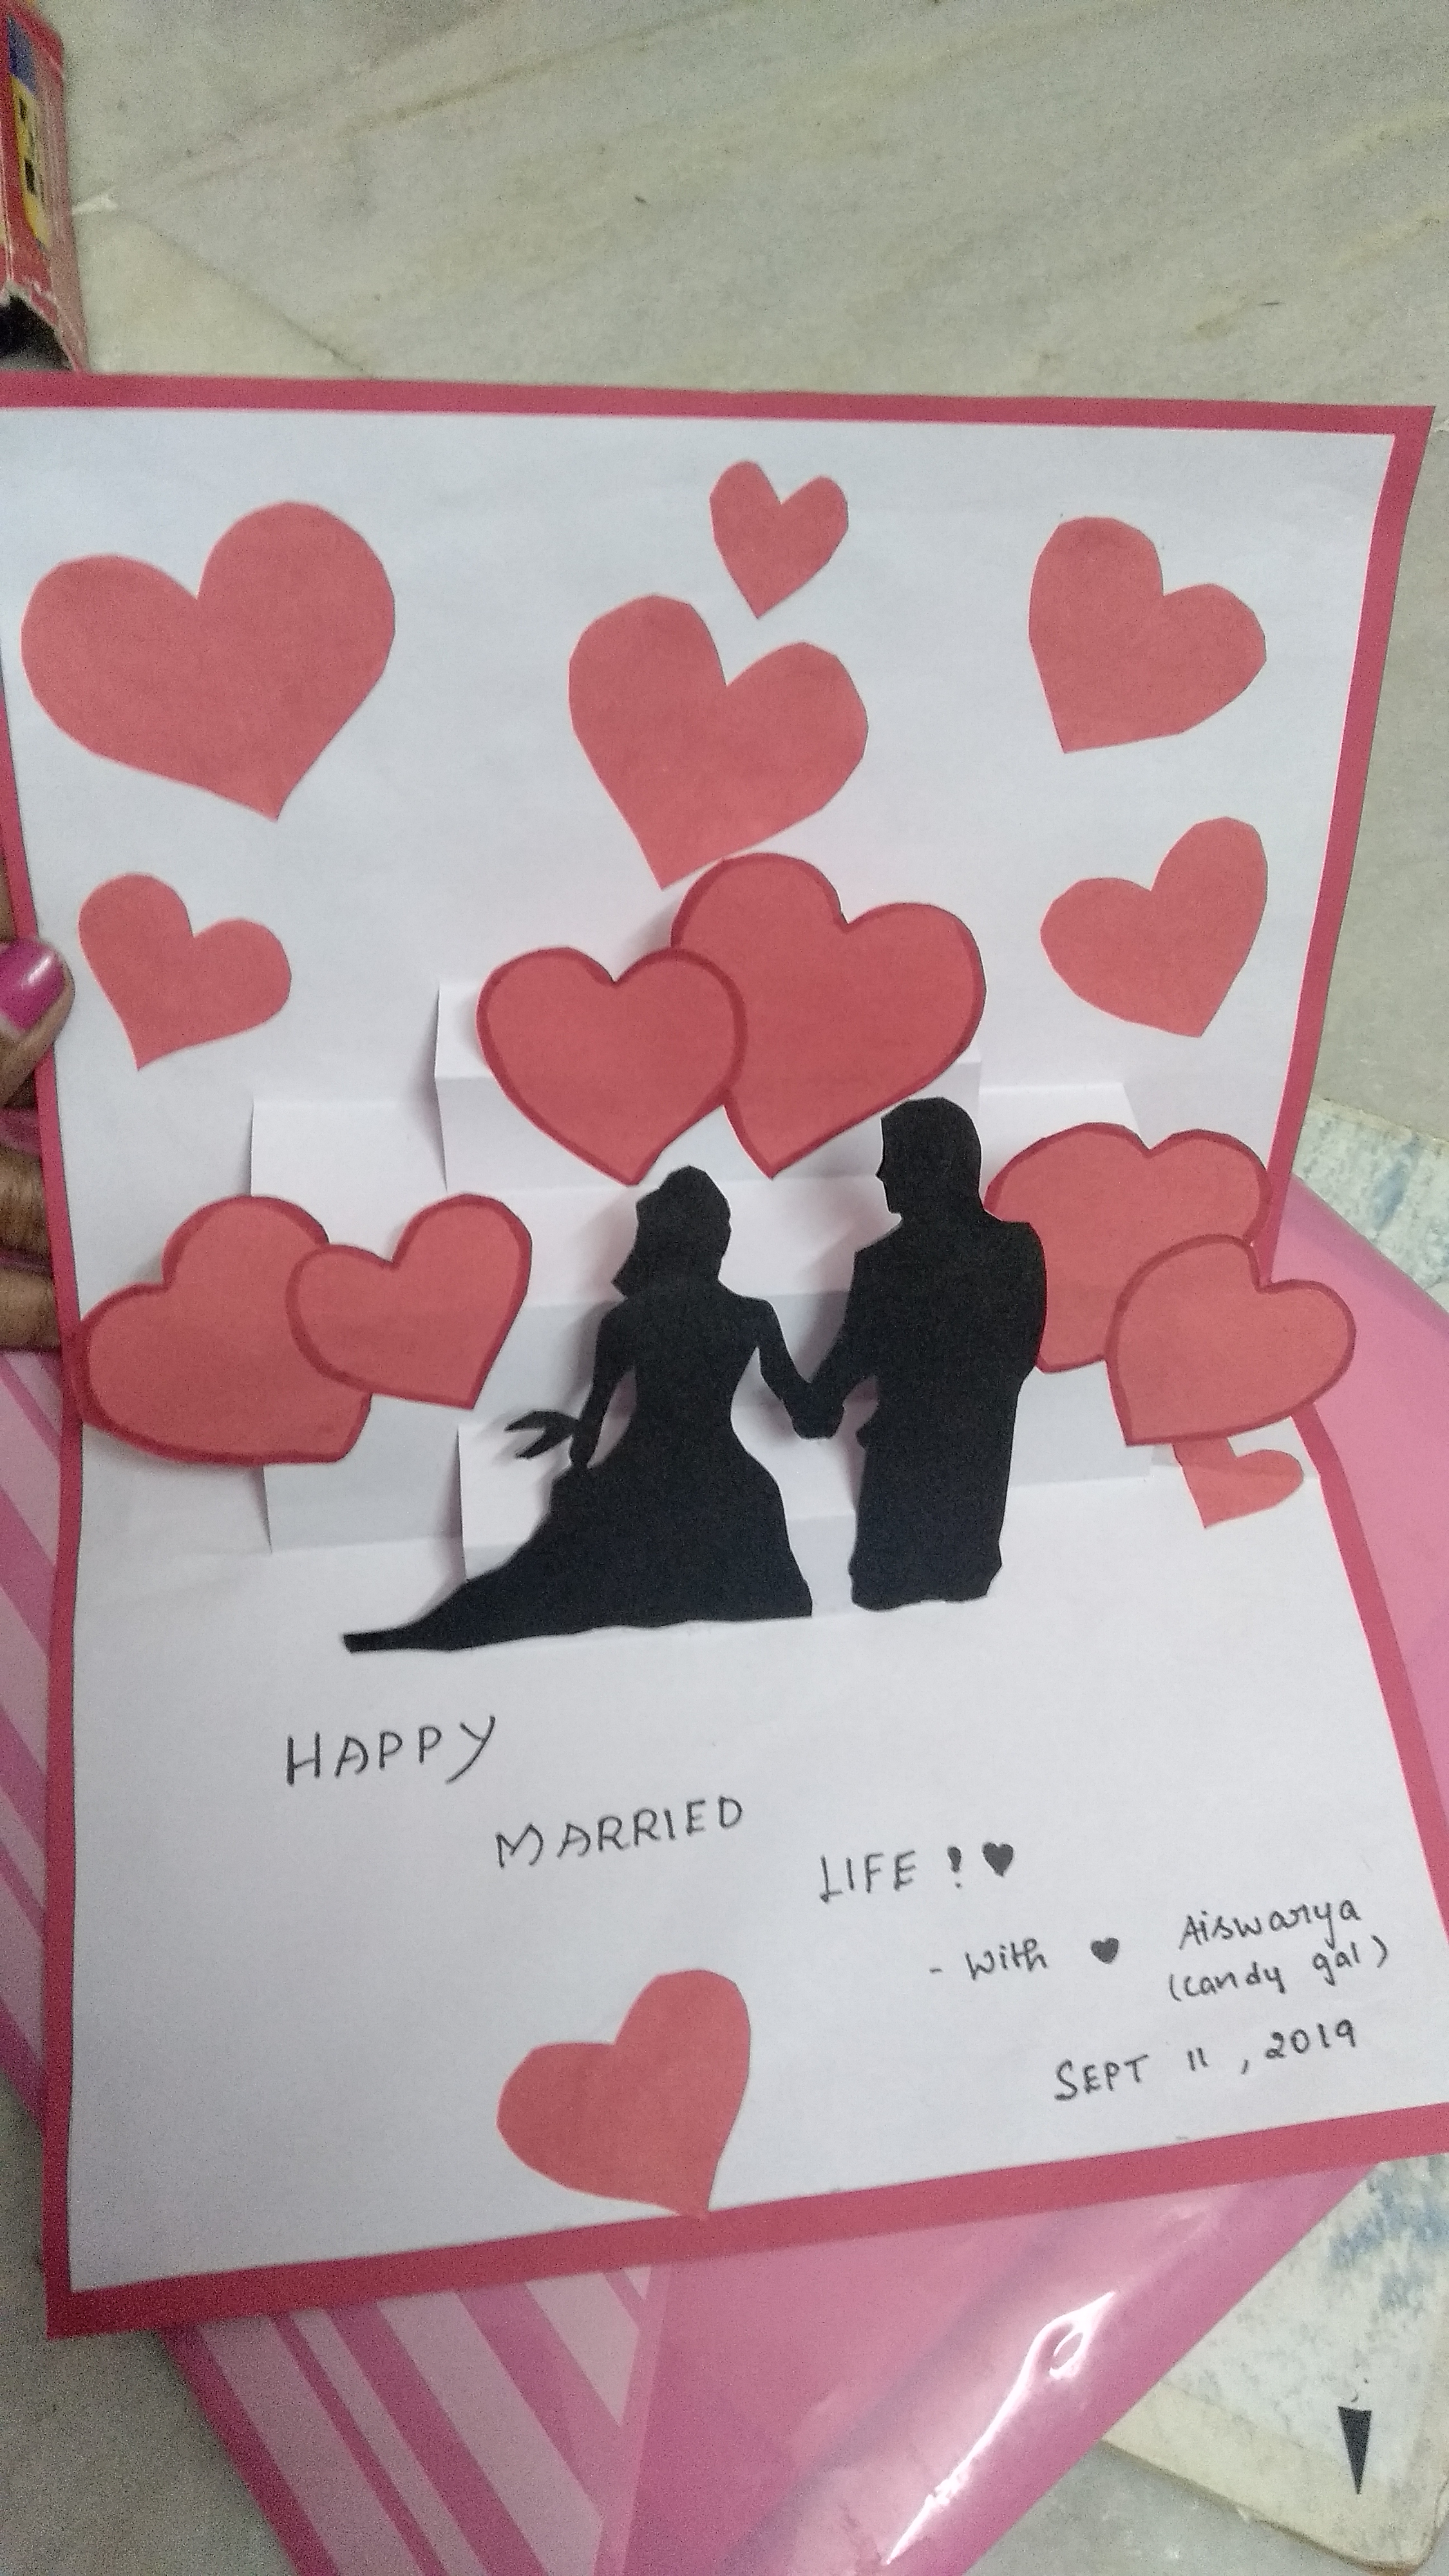 HAPPY
MARRIED
LIFE ! ♥
- With ♥ Aiswarya
(candy gal)
SEPT 11 , 2019